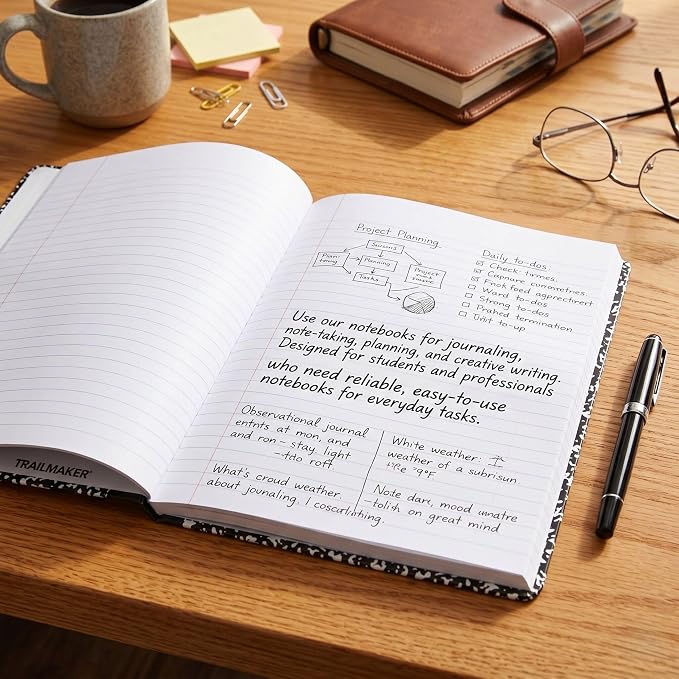 TRAILMAKER
Project Planning
Planning
Tasks
Project
Daily to-dos:
Check tinnes
Capnure cornmetrces.
Pnok feed agprectrert
Ward to-dos
Strong to-dos
Prahed termination.
to-up
Use our notebooks for journaling,
note-taking, planning, and creative writing.
Designed for students and professionals
who need reliable, easy-to-use
notebooks for everyday tasks.
Observational journal
entnts at mon, and
and ron - stay light
-tdo roft
White weather:
weather of a subrisun.
What's croud weather.
about jounaling. I
Note darc, mood wnatre
-tolith on great mind